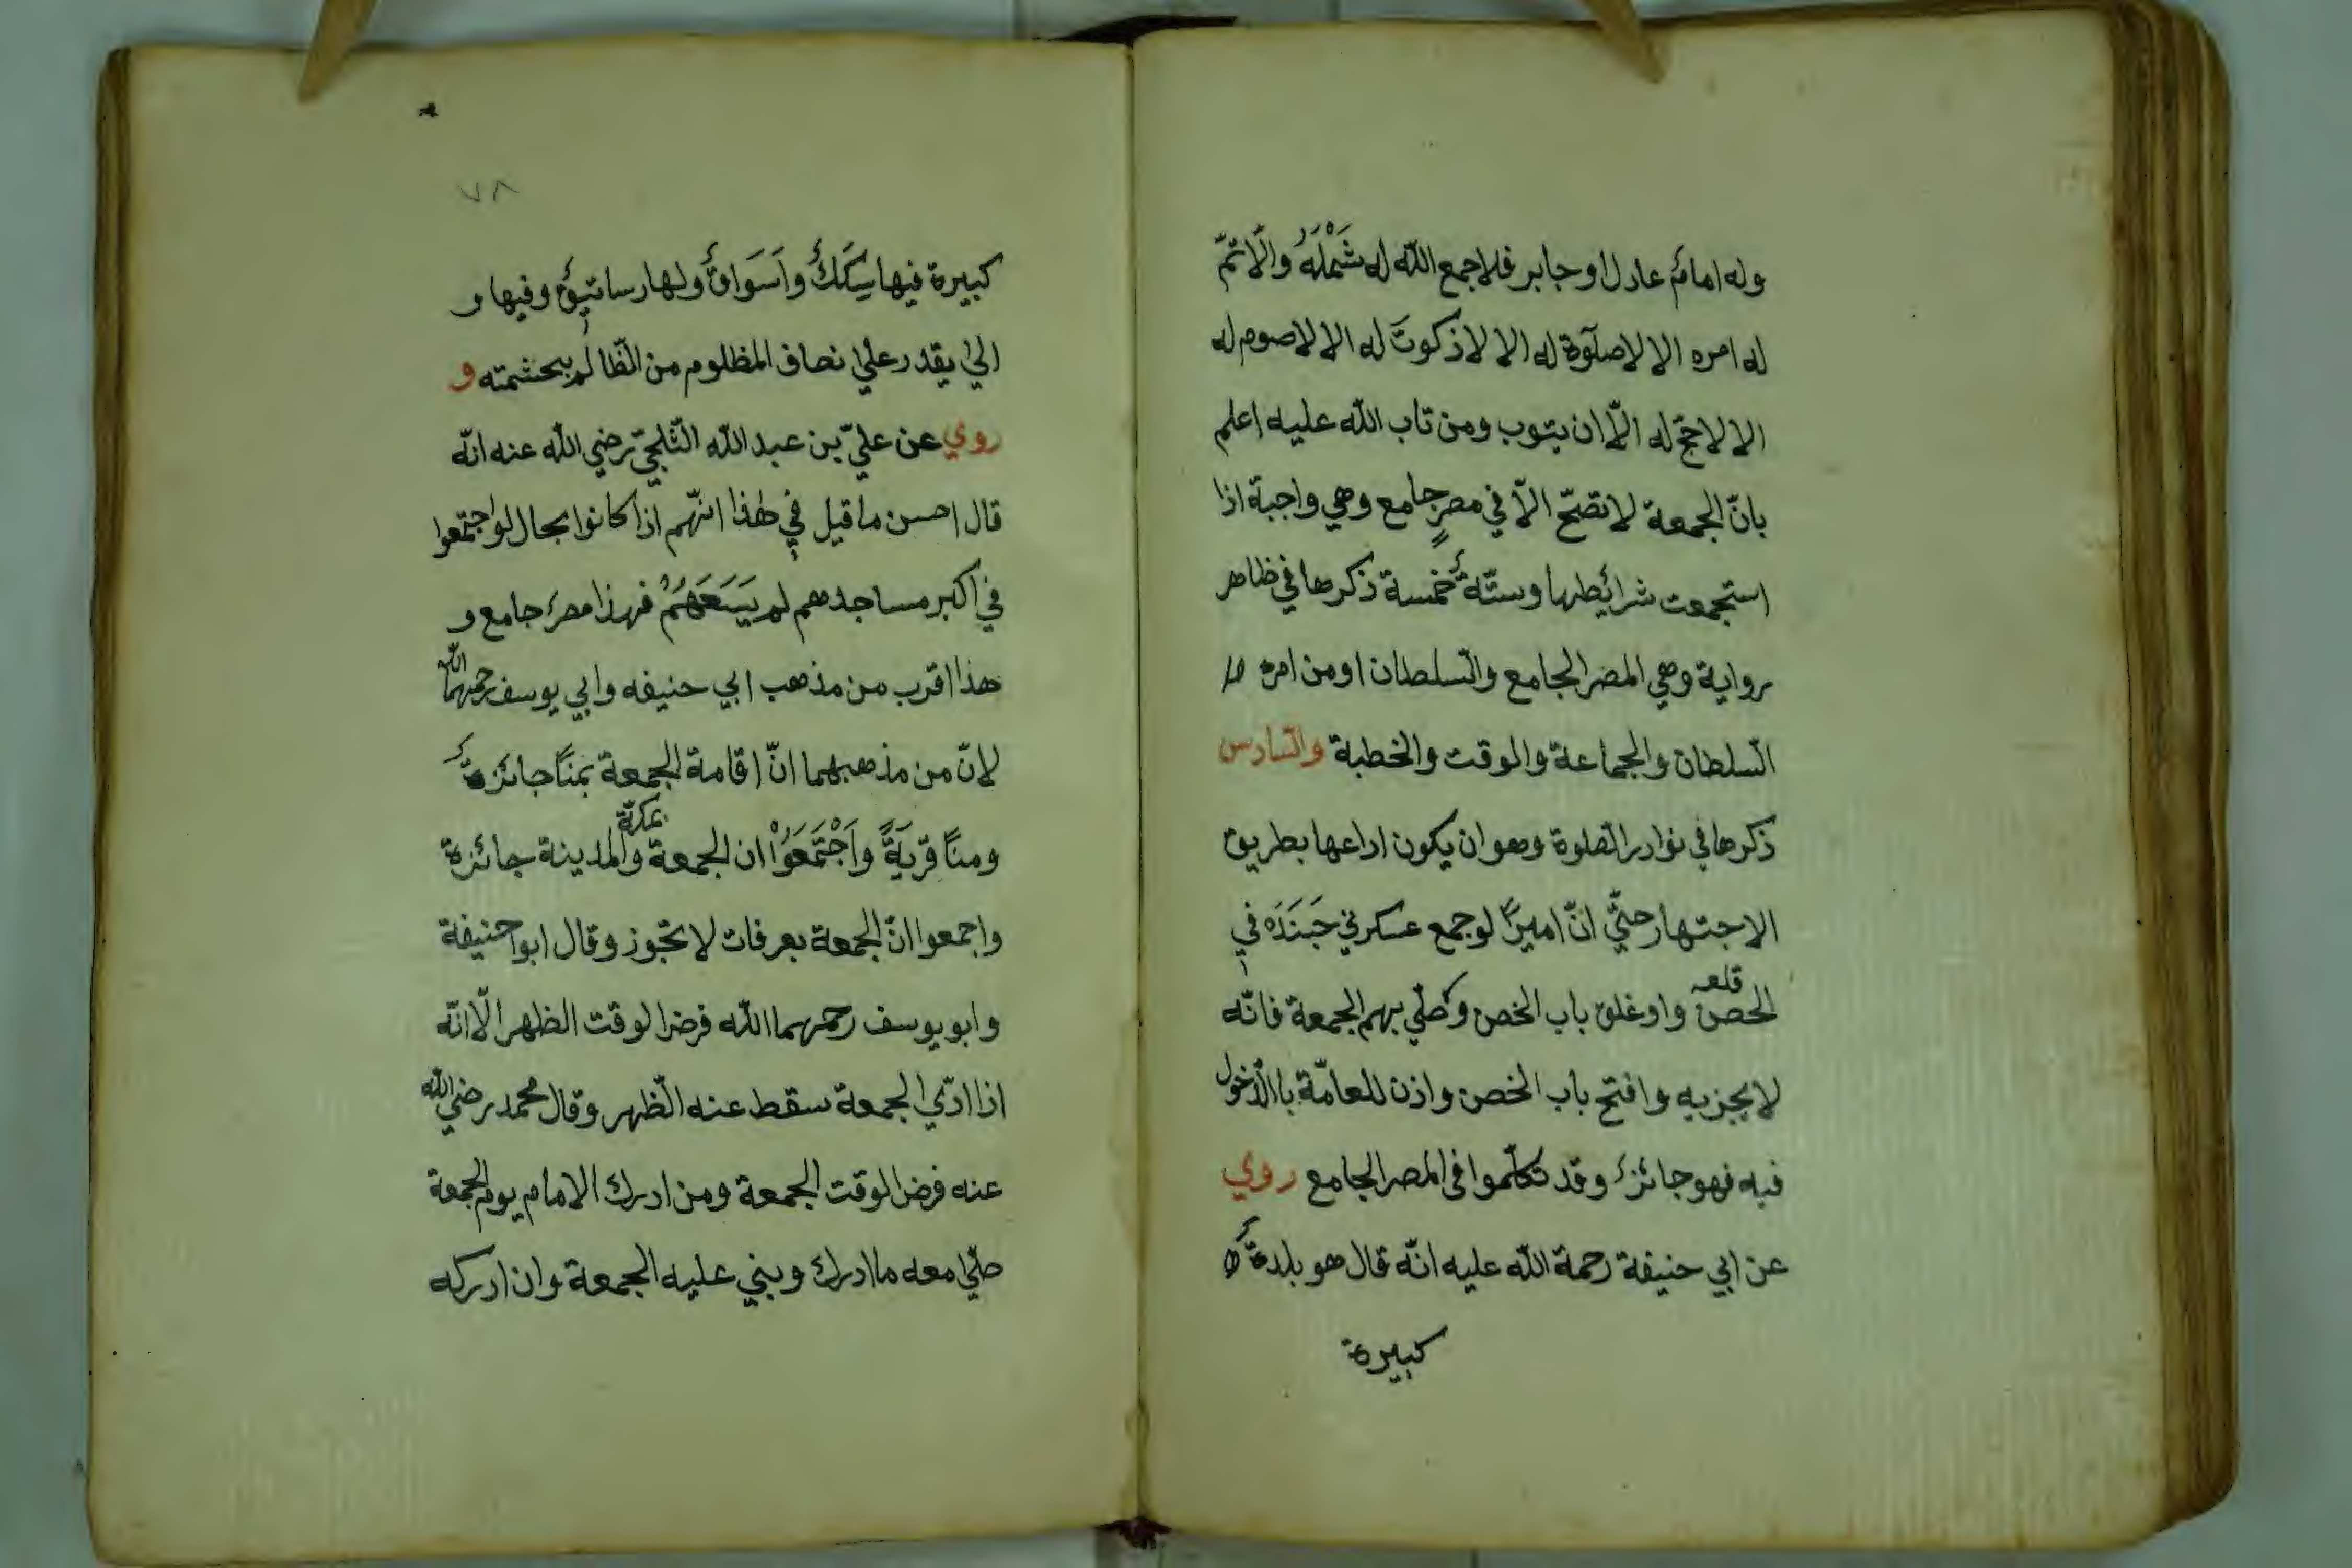 وله امامٌ عادل او جابر فلا جمع الله له شَمْلَهُ والّا تمّ
له امره الا لا صلٓوة له الا لا ذكوتَ له الا لا صوم له
الا لا حجّ له الّا ان يتوب ومن تاب الله عليه اعلم
بانّ الجمعة لا تصّحّ الّا في مصرٍ جامع وهي واجبة اذا
استجمعت شرائطها وستّة خمسة ذكرها في ظاهر
رواية وهي المصر الجامع والسّلطان او من امره
السّلطان والجماعة والوقت والخطبة والسّادس
ذكرها في نوادر الصّلوة وهو ان يكون اداعها بطريق
الاجتهار حتّي انّ اميرًا لو جمع عسكر في جَبَنَدَه في
قلعه
الحصن واوغلق باب الخصن وصلّي بهم الجمعة فانّه
لا يجزيه وافتح باب الخصن واذن للعامّة باالدّخول
فيه فهو جائز وقد تكلّموا في المصر الجامع روي
عن ابي حنيفة رحمة الله عليه انّه قال هو بلدةٌ
كبيرة
٧٨
كبيرة فيها سِكَكٌ واَسَوَاقٌ ولها رساتيقٌ وفيها و
الي يقدر علي نصاف المظلوم من الظّالم بحشمته و
روي عن عليّ بن عبد الله الثّلجيّ رضي الله عنه انّه
قال احسن ما قيل في هٰذا انّهم اذا كانوا بحال لو اجتمعوا
في اكبر مساجدهم لم يَسَعَهُمْ فهذا مصر جامع و
هذا اقرب من مذهب ابي حنيفه وابي يوسف رحمهما الله
لانّ من مذهبهما انّ اقامة الجمعة بمنًا جائزةٌ
بمكّة
ومنًا قَرْيَةً واَجْتَمَعَوُاْ ان الجمعة والمدينة جائزة
واجمعوا انّ الجمعة بعرفات لا تجّوز وقال ابوا حنيفة
وابو يوسف رحمهما الله فرض الوقت الظهر الّا انّه
اذا ادّي الجمعة سقط عنه الظّهر وقال محمد رضي الله
عنه فرض الوقت الجمعة ومن ادرك الامام يوم الجمعة
صلّي معه ما ادرك وبني عليه الجمعة وان ادركه